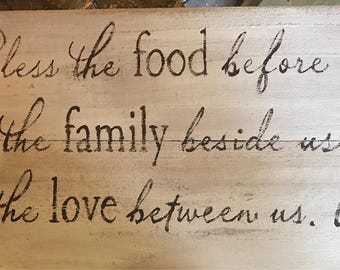 Bless the food before
the family beside us
the love between us.